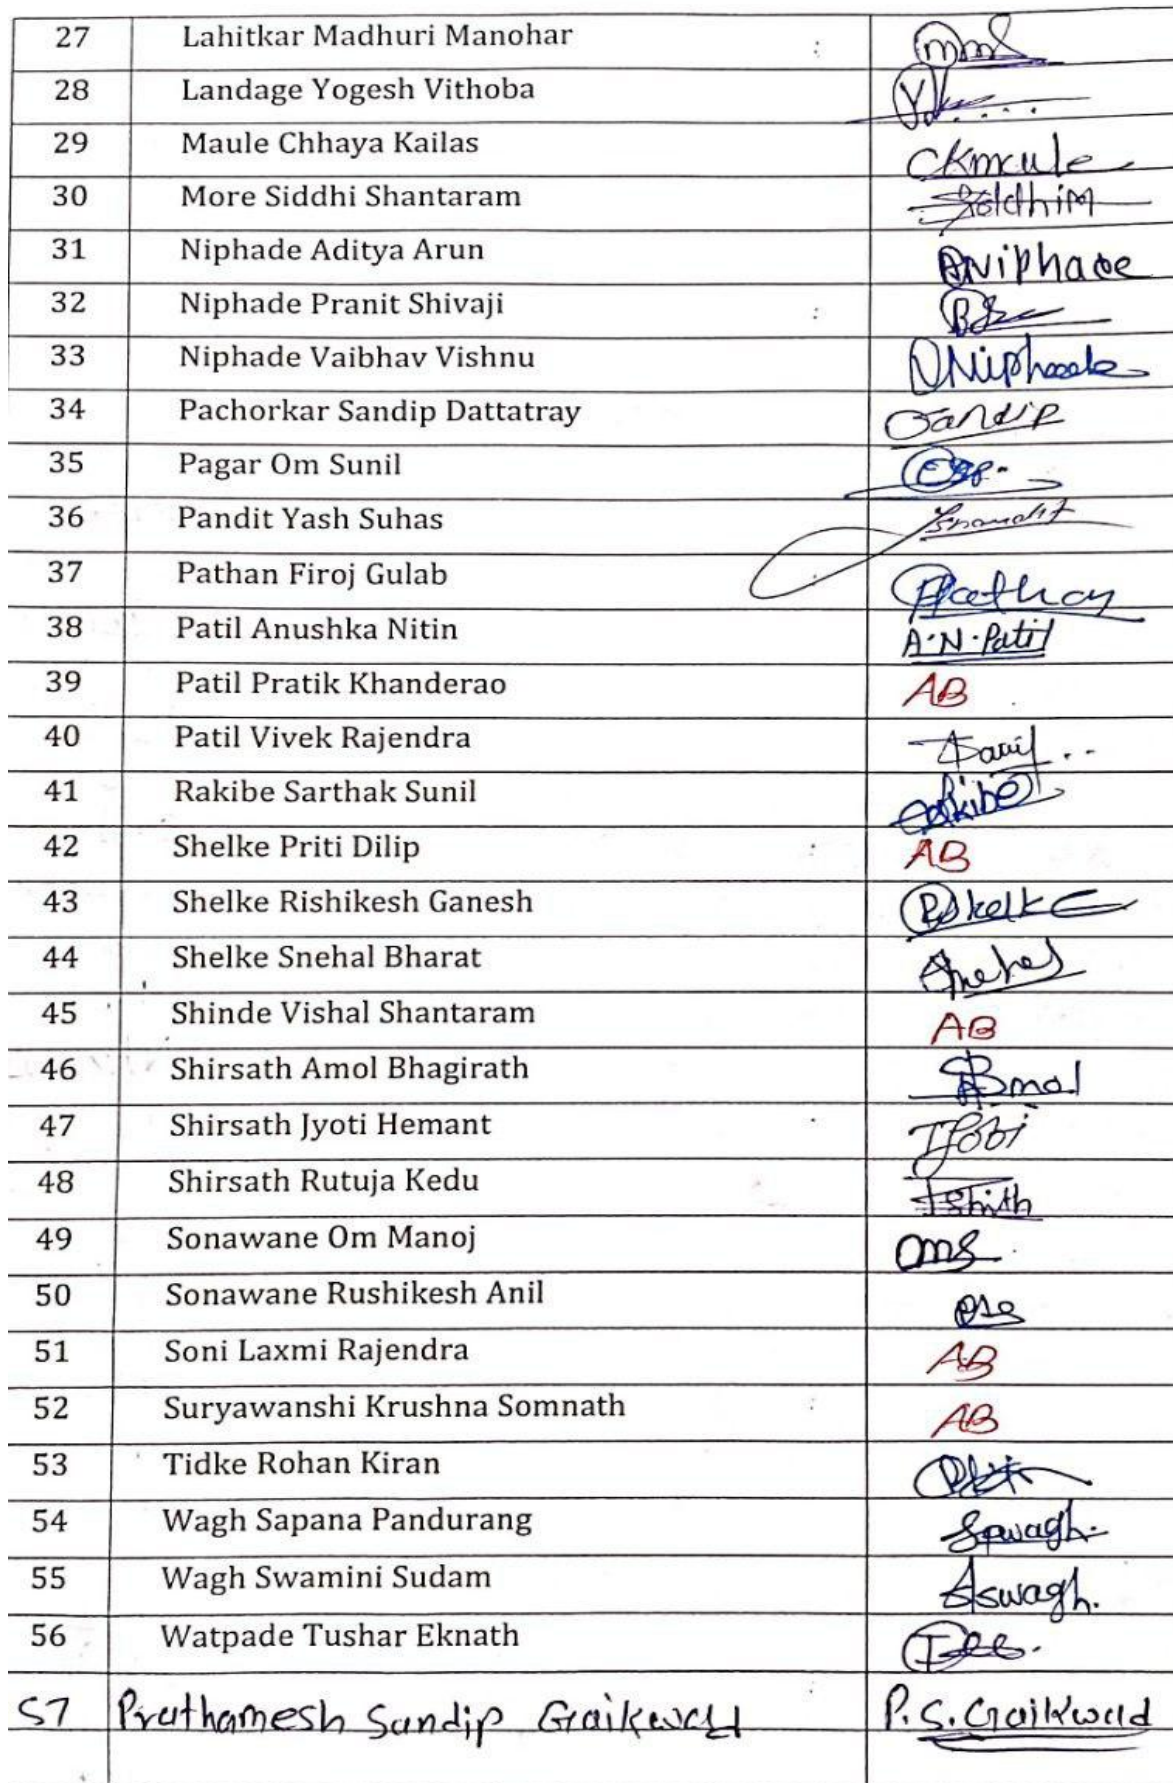 27 Lahitkar Madhuri Manohar
28 Landage Yogesh Vithoba
29 Maule Chhaya Kailas CKmaule
30 More Siddhi Shantaram SiddhiM
31 Niphade Aditya Arun ANiphade
32 Niphade Pranit Shivaji
33 Niphade Vaibhav Vishnu VNiphade
34 Pachorkar Sandip Dattatray Sandip
35 Pagar Om Sunil
36 Pandit Yash Suhas
37 Pathan Firoj Gulab FPathan
38 Patil Anushka Nitin A.N.Patil
39 Patil Pratik Khanderao AB
40 Patil Vivek Rajendra
41 Rakibe Sarthak Sunil Rakibe
42 Shelke Priti Dilip AB
43 Shelke Rishikesh Ganesh RShelke
44 Shelke Snehal Bharat Snehal
45 Shinde Vishal Shantaram AB
46 Shirsath Amol Bhagirath
47 Shirsath Jyoti Hemant
48 Shirsath Rutuja Kedu
49 Sonawane Om Manoj OmS
50 Sonawane Rushikesh Anil
51 Soni Laxmi Rajendra AB
52 Suryawanshi Krushna Somnath AB
53 Tidke Rohan Kiran
54 Wagh Sapana Pandurang Spwagh.
55 Wagh Swamini Sudam Sswagh.
56 Watpade Tushar Eknath
57 Prathamesh Sandip Gaikwad P.S.Gaikwad